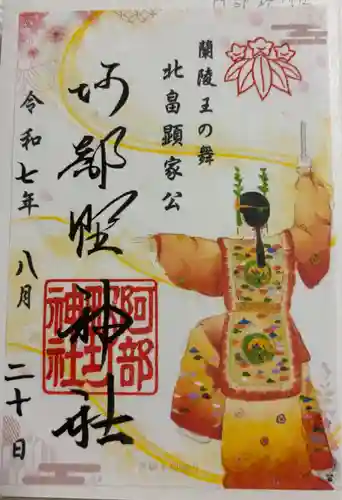 蘭陵王の舞
北畠顕家公
阿部野神社
阿部
野
神社
令和七年八月二十日